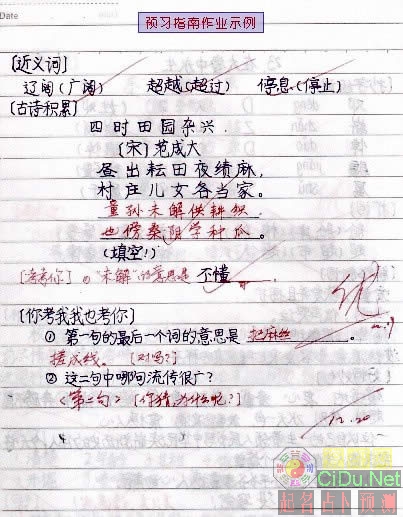 Date
预习指南作业示例
[近义词]
辽阔(广阔) 超越(超过) 停息(停止)
[古诗积累]
四时田园杂兴.
[宋]范成大
昼出耘田夜绩麻,
村庄儿女各当家。
童孙未解供耕织,
也傍桑阴学种瓜。
(填空!)
[考考你]①"未解"的意思是不懂
优
[你考我我也考你]
① 第一句的最后一个词的意思是 把麻丝
搓成线。 [对吗?]
② 这二句中哪句流传很广?
<第二句> [你猜,为什么呢?]
12.20
CiDu.Net
起名占卜预测